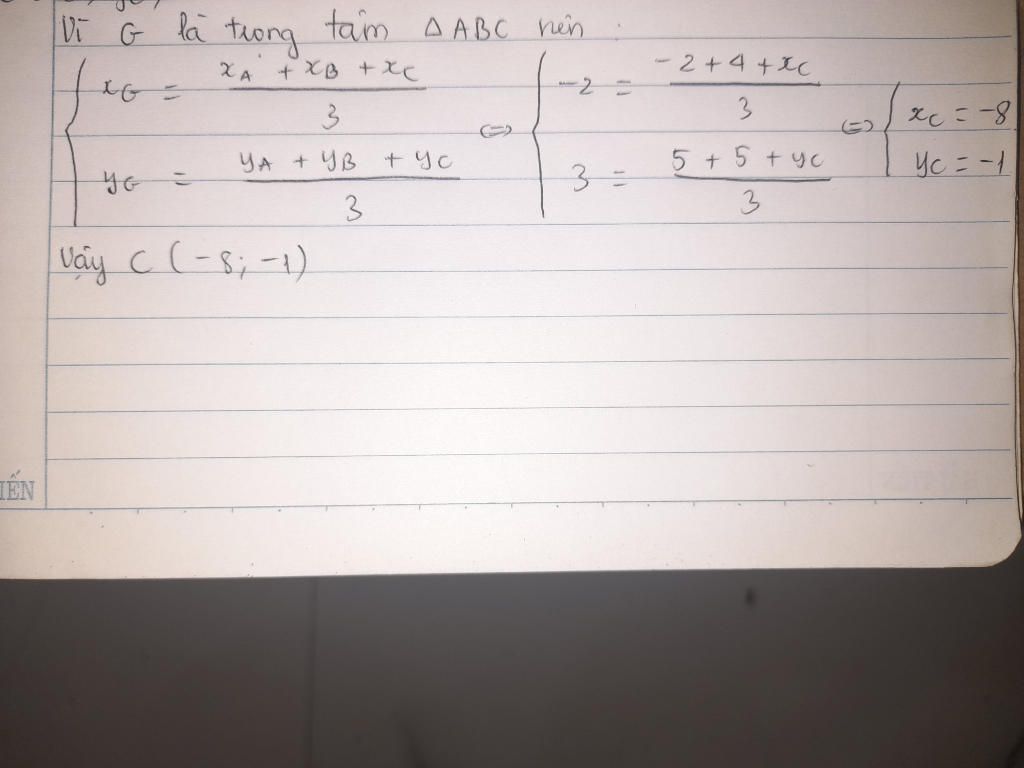 Vì G là trọng tâm ΔABC nên :
{ x_G = (x_A + x_B + x_C)/3 ; y_G = (y_A + y_B + y_C)/3 ⇔ { -2 = (-2 + 4 + x_C)/3 ; 3 = (5 + 5 + y_C)/3 ⇔ { x_C = -8 ; y_C = -1
Vậy C (-8; -1)
IẾN